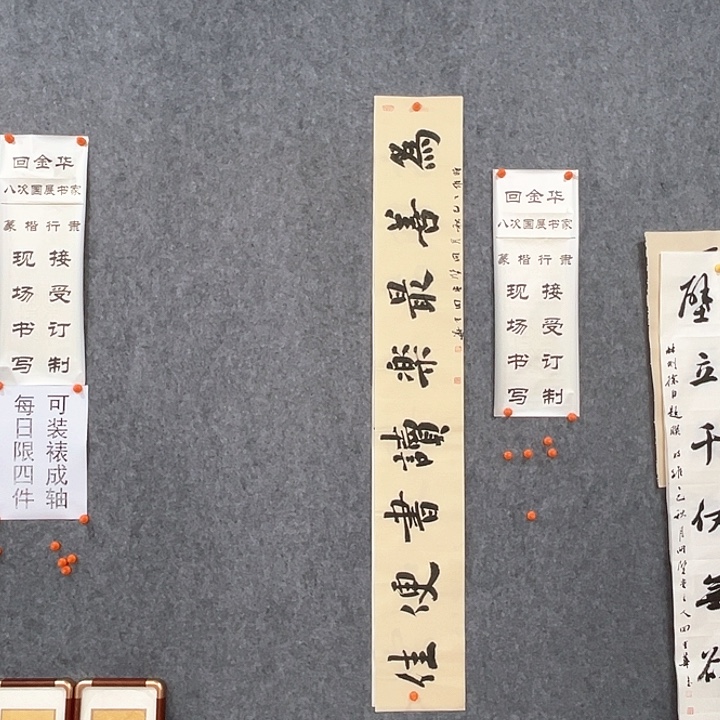 回金华
八次国展书家
篆楷行隶
接受订制
现场书写
可装裱成轴
每日限四件
為善最樂讀書便佳
回金华
八次国展书家
篆楷行隶
接受订制
现场书写
壁立千仞無欲